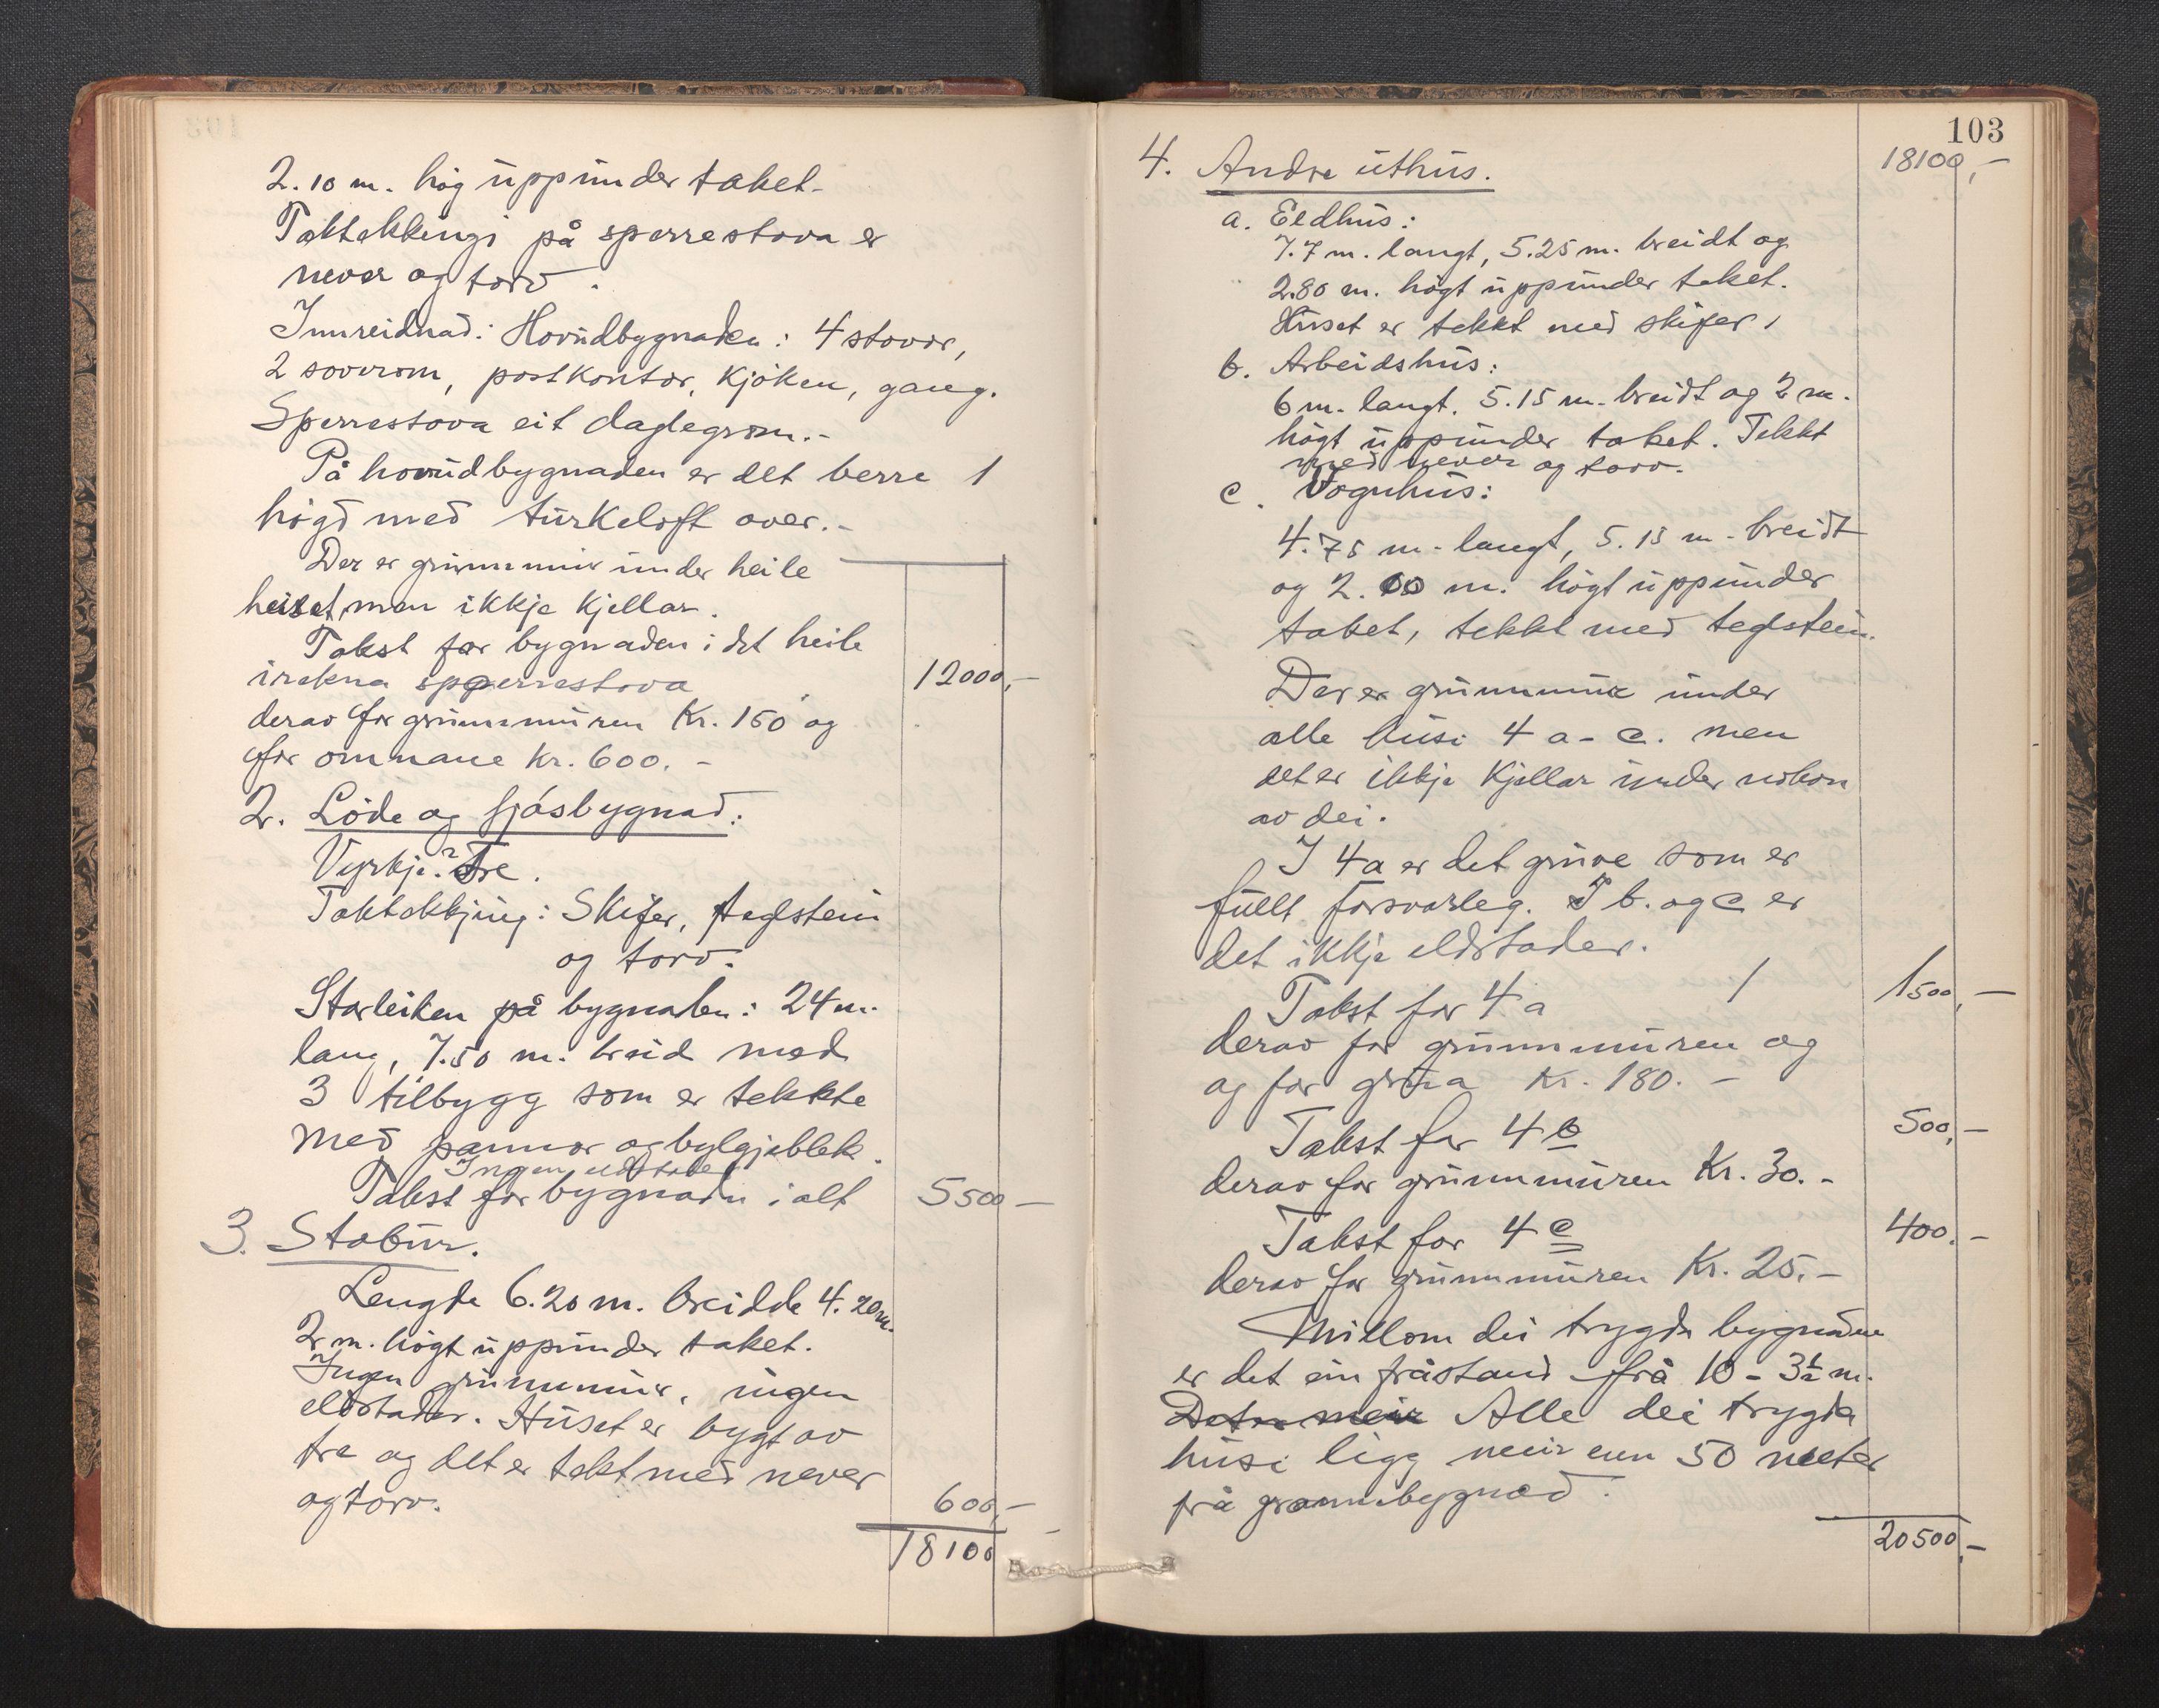 2.10 m. høg uppunder taket.
Taktekkingi på sperrestova er
never og torv.
Innreidnad: Hovudbygnaden: 4 stovor,
2 soverom, postkontor, kjøken, gang.
Sperrestova eit daglegrom.-
På hovudbygnaden er det berre 1
høgd med turkeloft over.-
Der er grunnmur under heile
huset, men ikkje kjellar.
Takst for bygnaden i det heile
irekna sperrestova 12000,-
derav for grunnmuren Kr. 150 og
for omnane Kr. 600.-
2. Löde og fjósbygnad:
Vyrkje: Tre.
Taktekkjing: Skifer, teglstein
og torv.
Storleiken på bygnaden: 24 m.
lang, 7.50 m. breid med
3 tilbygg som er tekkte
med pannor og bylgjeblek.
Ingen eldstader
Takst for bygnaden i alt 5500 -
3. Stabur.
Lengde 6.20 m. breidde 4.20 m.
2 m. høgt uppunder taket.
Ingen grunnmur, ingen
eldstader. Huset er bygt av
tre og det er tekt med never
og torv. 600,-
18100 -
103
18100,-
4. Andre uthus.
a. Eldhus:
7.7 m. langt, 5.25 m. breidt og
2.80 m. høgt uppunder taket.
Huset er tekkt med skifer,
b. Arbeidshus:
6 m. langt. 5.15 m. breidt og 2 m.
høgt uppunder taket. Tekkt
med never og torv.
c. Vognhus:
4.75 m. langt, 5.15 m. breidt
og 2.00 m. høgt uppunder
taket, tekkt med teglstein.
Der er grunnmur under
alle husi 4 a - c. men
det er ikkje kjellar under nokon
av dei.
I 4a er det gruve som er
fullt forsvarleg. I b. og c er
det ikkje eldstader.
Takst for 4 a 1500,-
derav for grunnmuren og
og for gruva Kr. 180.-
Takst for 4 b 500,-
derav for grunnmuren Kr. 30.-
Takst for 4 c 400.-
derav for grunnmuren Kr. 25.-
Millom dei trygda bygnadene
er det ein fråstand frå 10 - 3½ m.
Det er meir Alle dei trygda
husi ligg meir enn 50 meter
frå grannebygnad.
20500,-